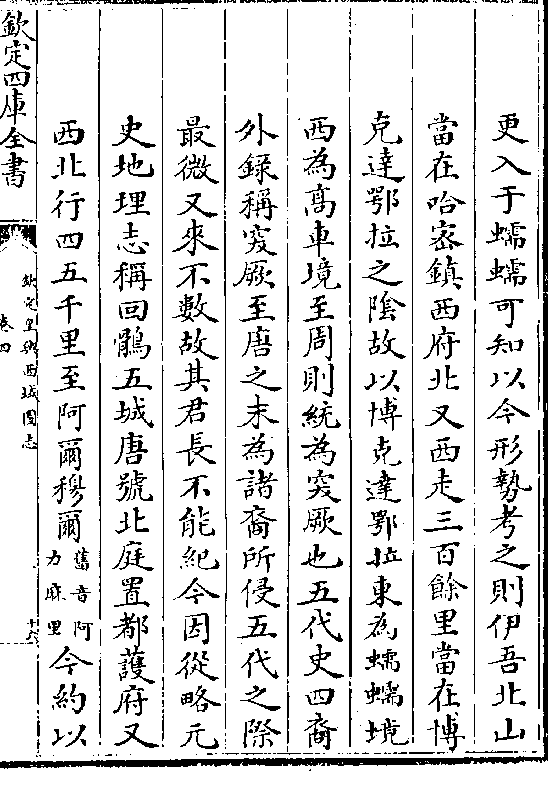 更入于蠕蠕可知以今形勢考之則伊吾北山
當在哈密鎮西府北又西走三百餘里當在博
克達鄂拉之隂故以博克達鄂拉東為蠕蠕境
西為髙車境至周則統為突厥也五代史四裔
外録稱突厥至唐之末為諸裔所侵五代之際
最微又來不數故其君長不能紀今因從略元
史地理志稱回鶻五城唐號北庭置都䕶府又
西北行四五千里至阿爾穆爾舊音阿力麻里今約以
欽定四庫全書
欽定皇輿西域圖志
卷四
十六